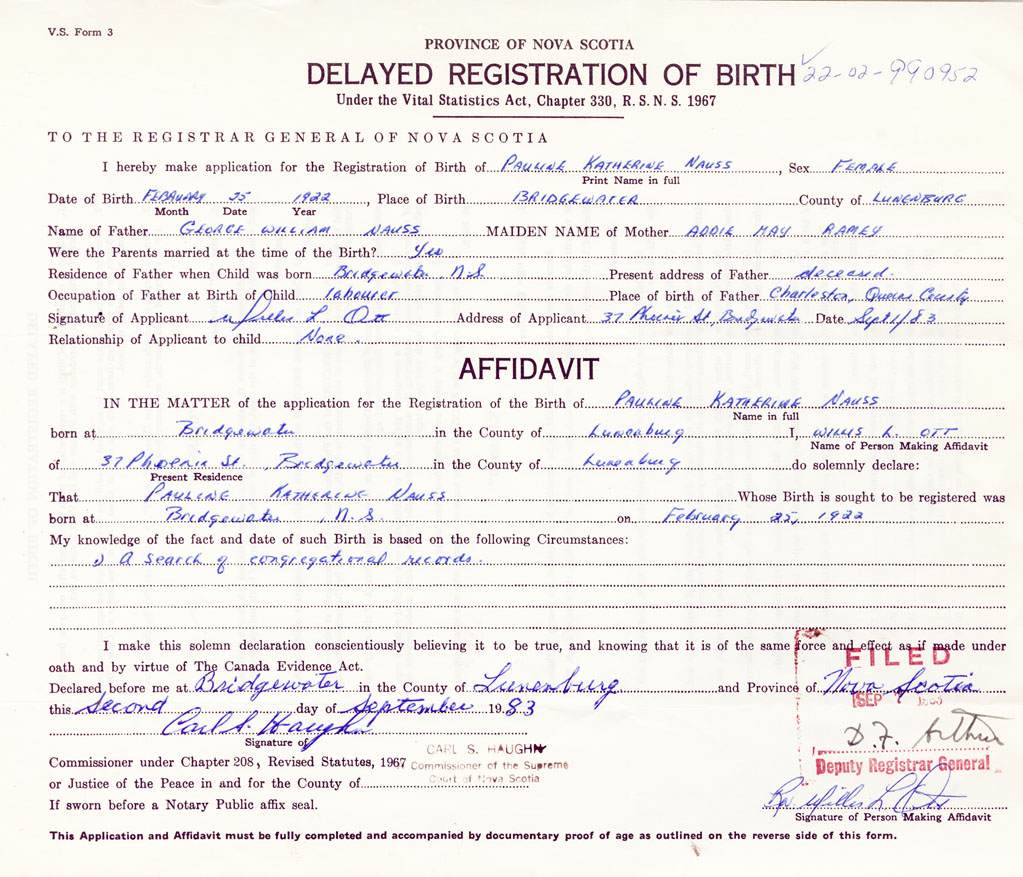 V.S. Form 3
PROVINCE OF NOVA SCOTIA
DELAYED REGISTRATION OF BIRTH ✓ 22-02-990952
Under the Vital Statistics Act, Chapter 330, R. S. N. S. 1967
TO THE REGISTRAR GENERAL OF NOVA SCOTIA
I hereby make application for the Registration of Birth of PAULINE KATHERINE NAUSS, Sex FEMALE
Print Name in full
Date of Birth FEBRUARY 25 1922, Place of Birth BRIDGEWATER County of LUNENBURG
Month Date Year
Name of Father GEORGE WILLIAM NAUSS MAIDEN NAME of Mother ADDIE MAY RAMEY
Were the Parents married at the time of the Birth? Yes
Residence of Father when Child was born Bridgewater N.S. Present address of Father deceased
Occupation of Father at Birth of Child labourer Place of birth of Father Charleston, Queens County
Signature of Applicant Willis L Ott Address of Applicant 37 Phoenix St, Bridgewater Date Sept 1/83
Relationship of Applicant to child None.
AFFIDAVIT
IN THE MATTER of the application for the Registration of the Birth of PAULINE KATHERINE NAUSS
Name in full
born at Bridgewater in the County of Lunenburg I, WILLIS L. OTT
Name of Person Making Affidavit
of 37 Phoenix St., Bridgewater in the County of Lunenburg do solemnly declare:
Present Residence
That PAULINE KATHERINE NAUSS Whose Birth is sought to be registered was
born at Bridgewater, N.S. on February 25, 1922
My knowledge of the fact and date of such Birth is based on the following Circumstances:
1) A search of congregational records.
I make this solemn declaration conscientiously believing it to be true, and knowing that it is of the same force and effect as if made under
oath and by virtue of The Canada Evidence Act.
FILED
Declared before me at Bridgewater in the County of Lunenburg and Province of Nova Scotia
this Second day of September 1983
SEP 7
Carl S. Haughn
D. F. Arthur
Signature of
CARL S. HAUGHN
Commissioner under Chapter 208, Revised Statutes, 1967 Commissioner of the Supreme
Deputy Registrar General
or Justice of the Peace in and for the County of Court of Nova Scotia
Rev Willis L Ott
If sworn before a Notary Public affix seal.
Signature of Person Making Affidavit
This Application and Affidavit must be fully completed and accompanied by documentary proof of age as outlined on the reverse side of this form.